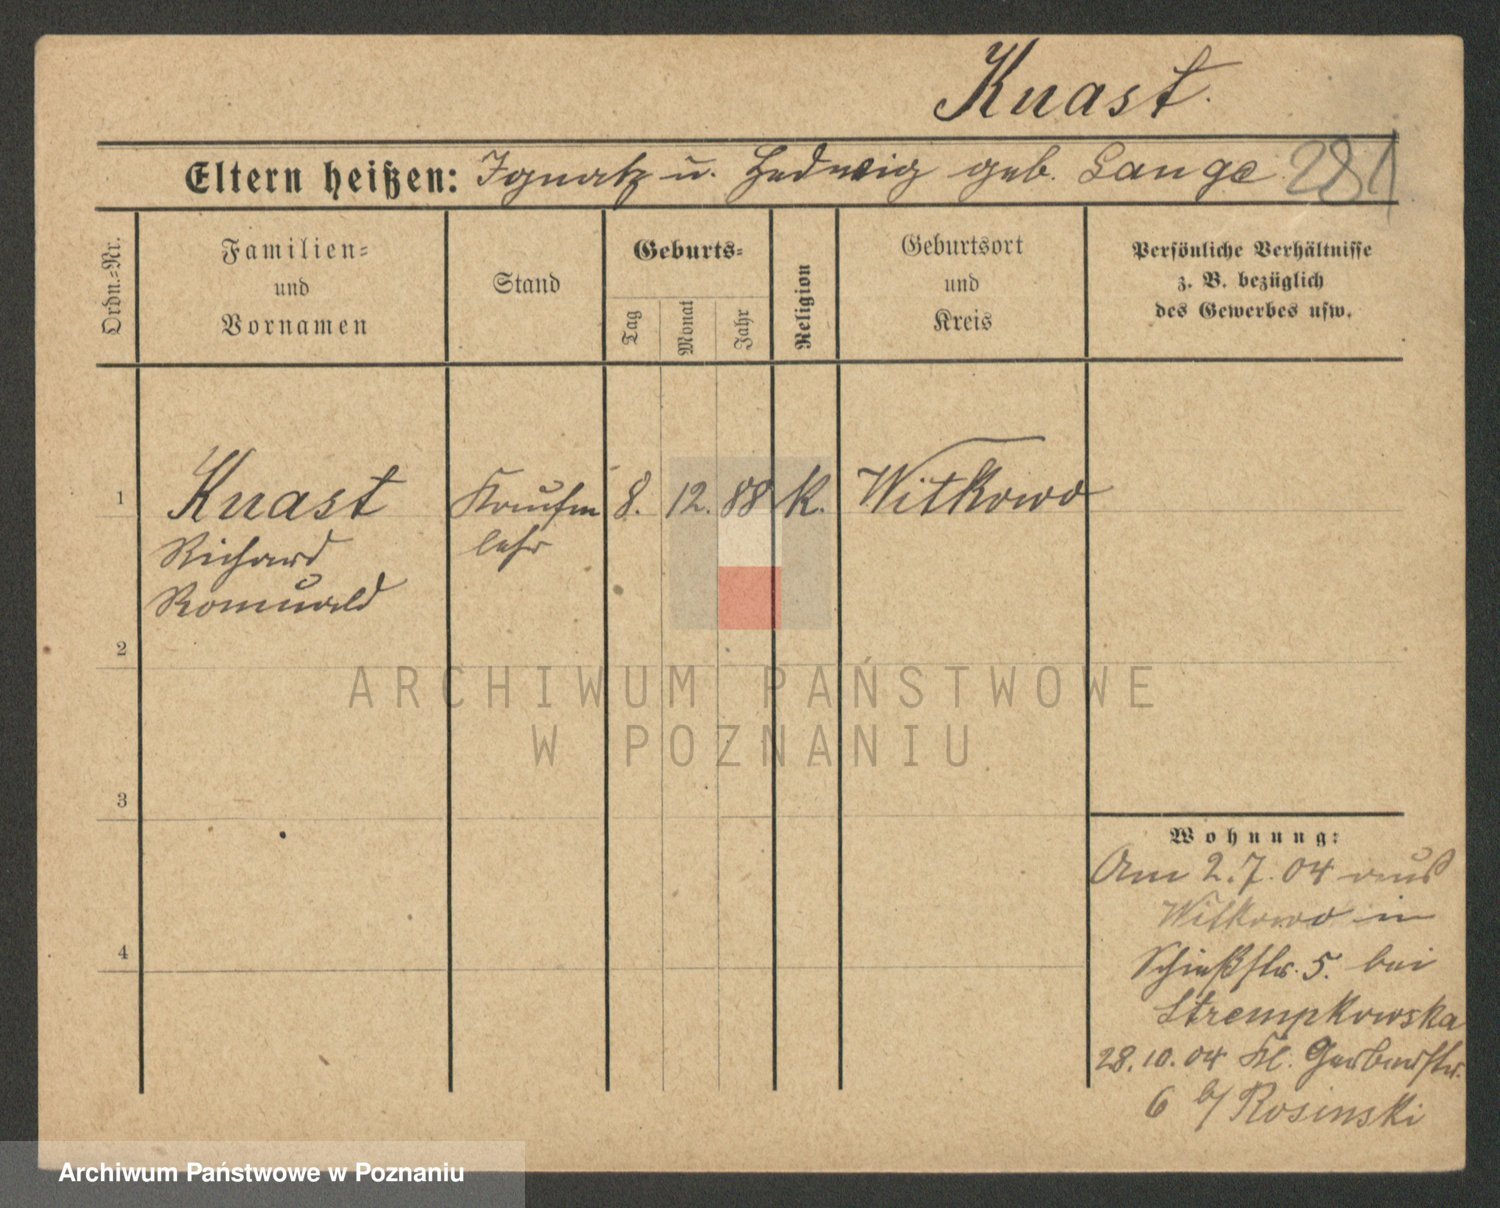 Knast.
Eltern heißen: Ignatz u. Hedwig geb. Lange 281
Ordn.-Nr.
Familien-
und
Vornamen
Stand
Geburts-
Tag
Monat
Jahr
Religion
Geburtsort
und
Kreis
Persönliche Verhältnisse
z. B. bezüglich
des Gewerbes usw.
1 Knast Kaufm 8. 12. 88 K. Witkowo
Richard lehr
Romuald
2
ARCHIWUM PAŃSTWOWE
W POZNANIU
3
Wohnung:
Am 2.7.04 aus
Witkowo in
4
Schießstr. 5. bei
Strempkowska
28.10.04 Kl. Gerberstr.
6 b/ Rosinski
Archiwum Państwowe w Poznaniu